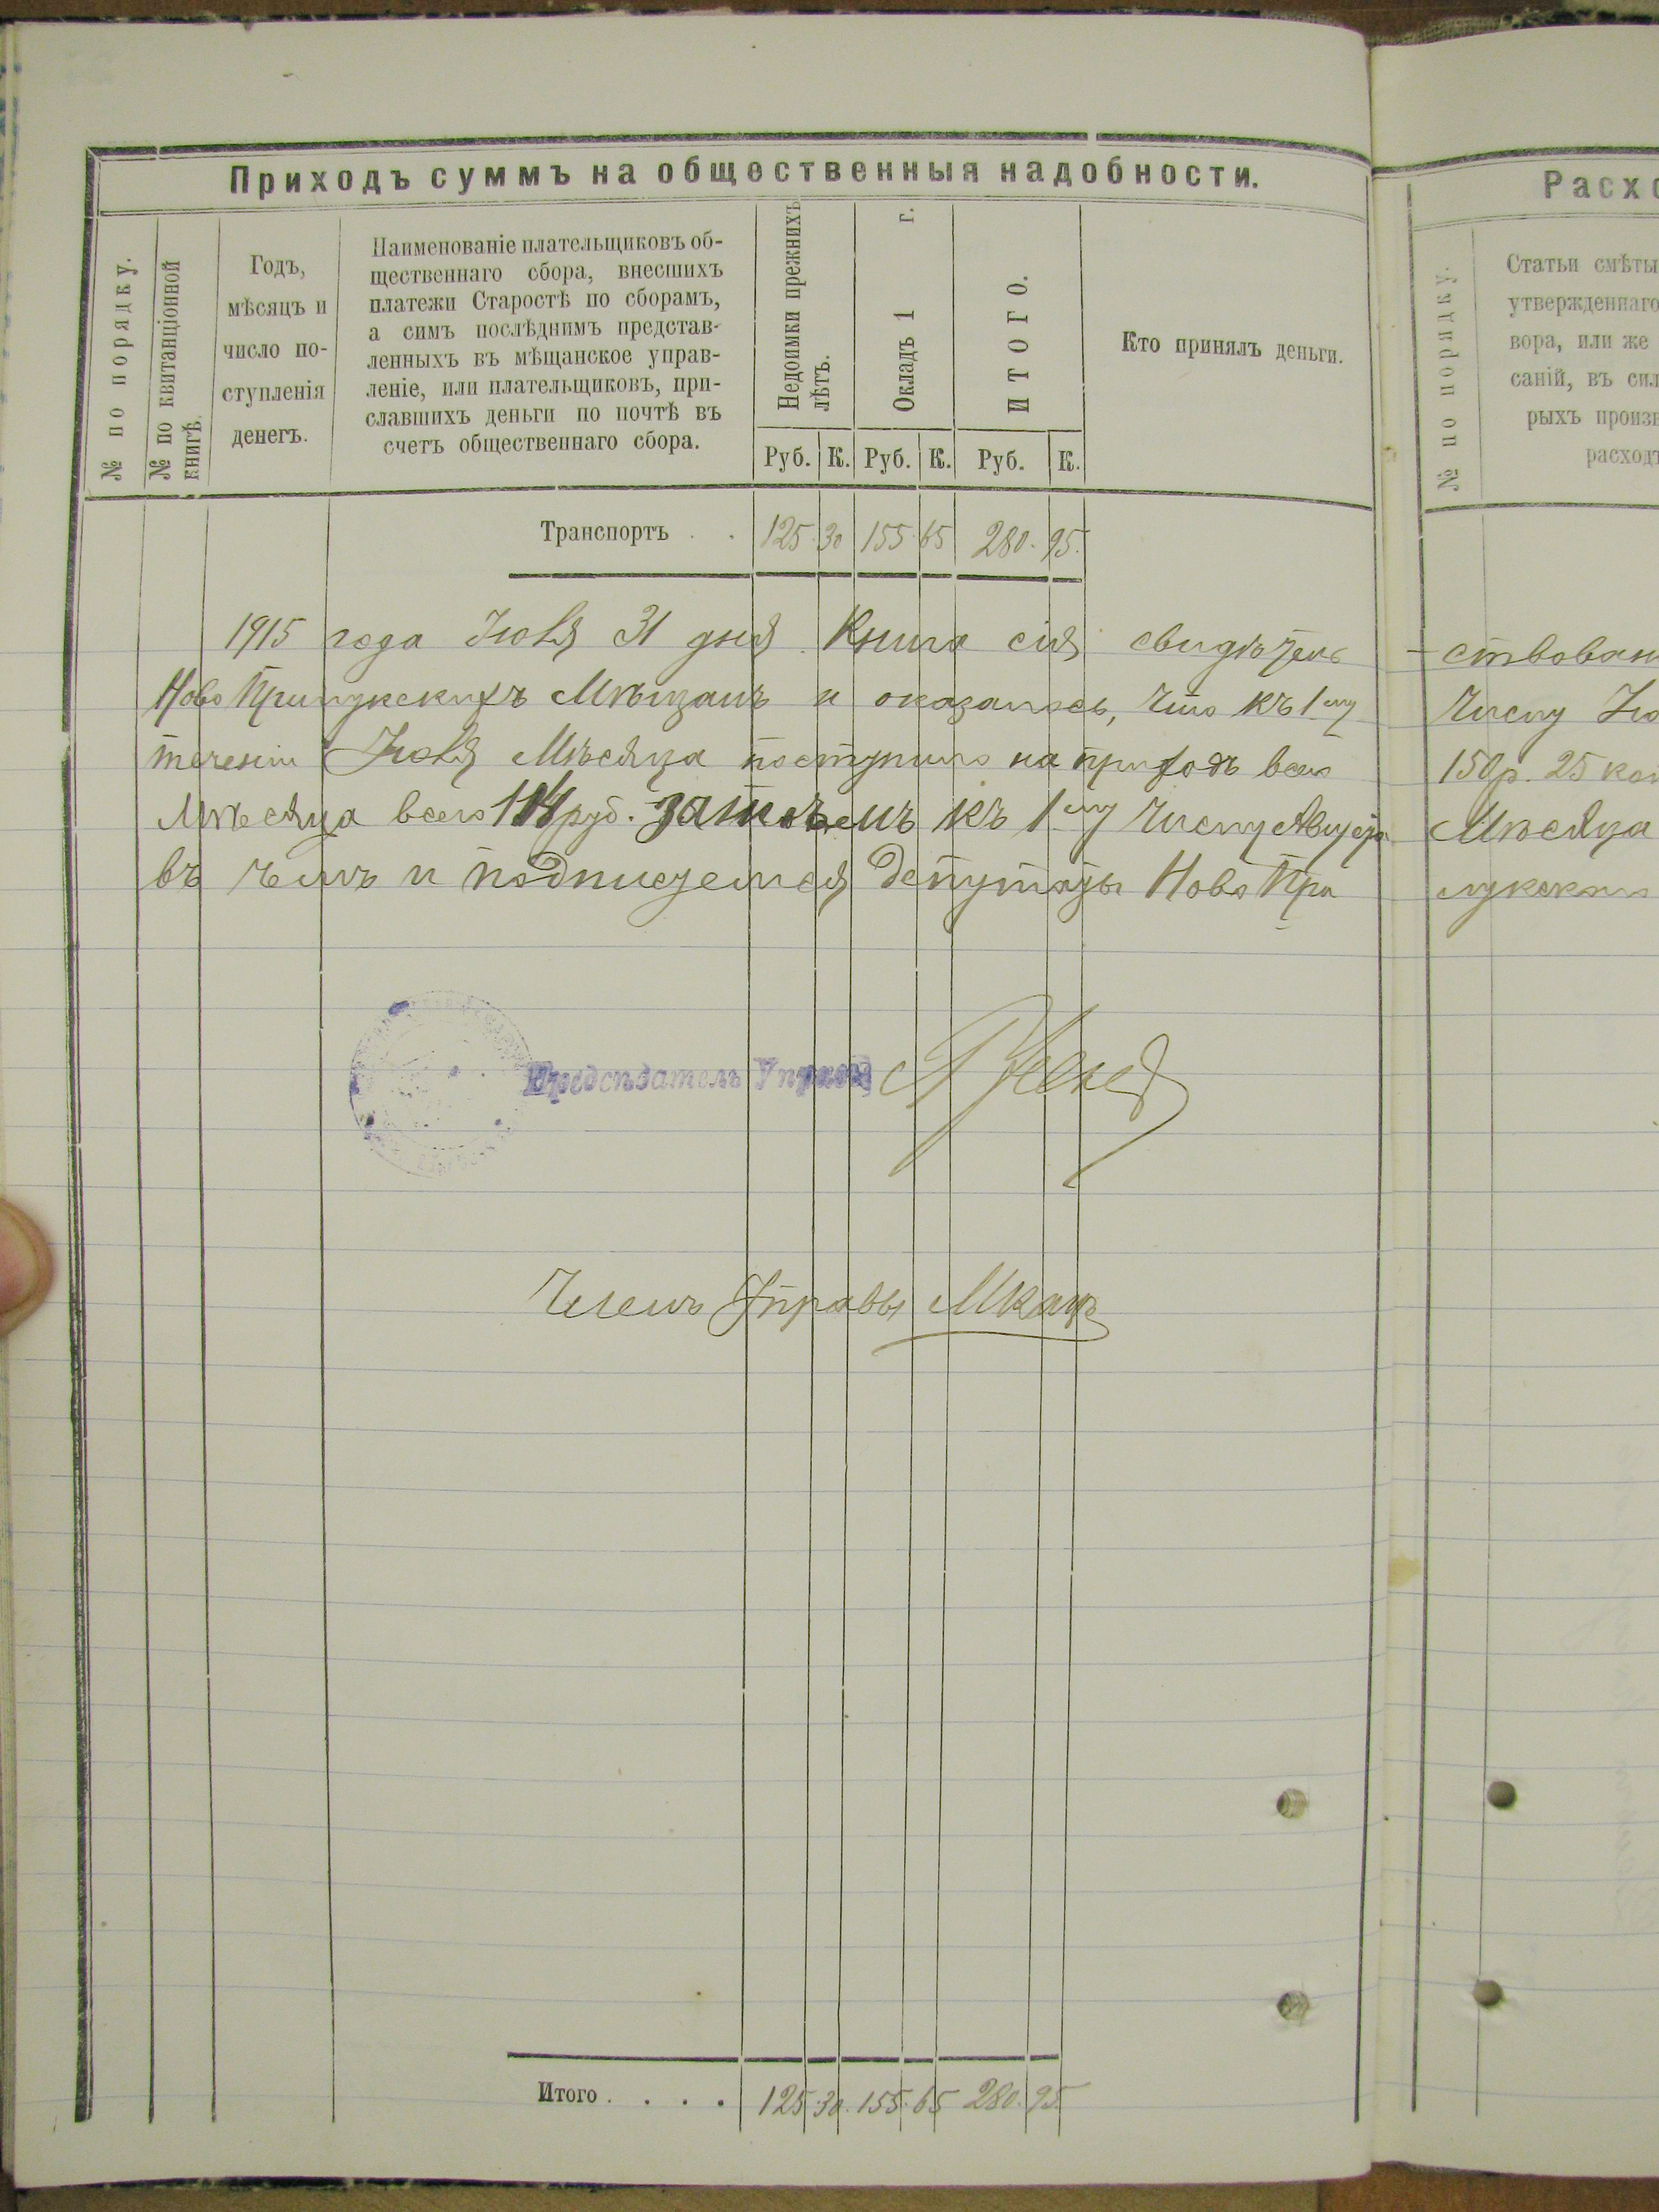 Приходъ суммъ на общественныя надобности.
№ по порядку.
№ по квитанціонной
книгѣ.
Годъ,
мѣсяцъ и
число по-
ступленія
денегъ.
Наименованіе плательщиковъ об-
щественнаго сбора, внесшихъ
платежи Старостѣ по сборамъ,
а симъ послѣднимъ представ-
ленныхъ въ мѣщанское управ-
леніе, или плательщиковъ, при-
славшихъ деньги по почтѣ въ
счетъ общественнаго сбора.
Недоимки прежнихъ
лѣтъ.
Окладъ 1 г.
ИТОГО.
Руб. К. Руб. К. Руб. К.
Кто принялъ деньги.
Транспортъ . . 125. 30 155. 65 280. 95.
1915 года Іюля 31 дня Книга сія свидѣтель
Ново Прилукскихъ Мѣщанъ и оказалось, что къ 1му
теченіи Іюля Мѣсяца поступило на приходъ всего
Мѣсяца всего руб. затѣмъ къ 1му числу Августа
въ чемъ и подписуемся Депутаты Ново При
Предсѣдатель Управы
Членъ Управы МКацъ
Итого . . . . 125. 30. 155. 65 280. 95.
Расхо
№ по порядку.
Статьи смѣты
утвержденнаго
вора, или же
саній, въ сил
рыхъ произв
расходъ
-ствован
Числу Ію
150р. 25 коп
Мѣсяца
лукскаго